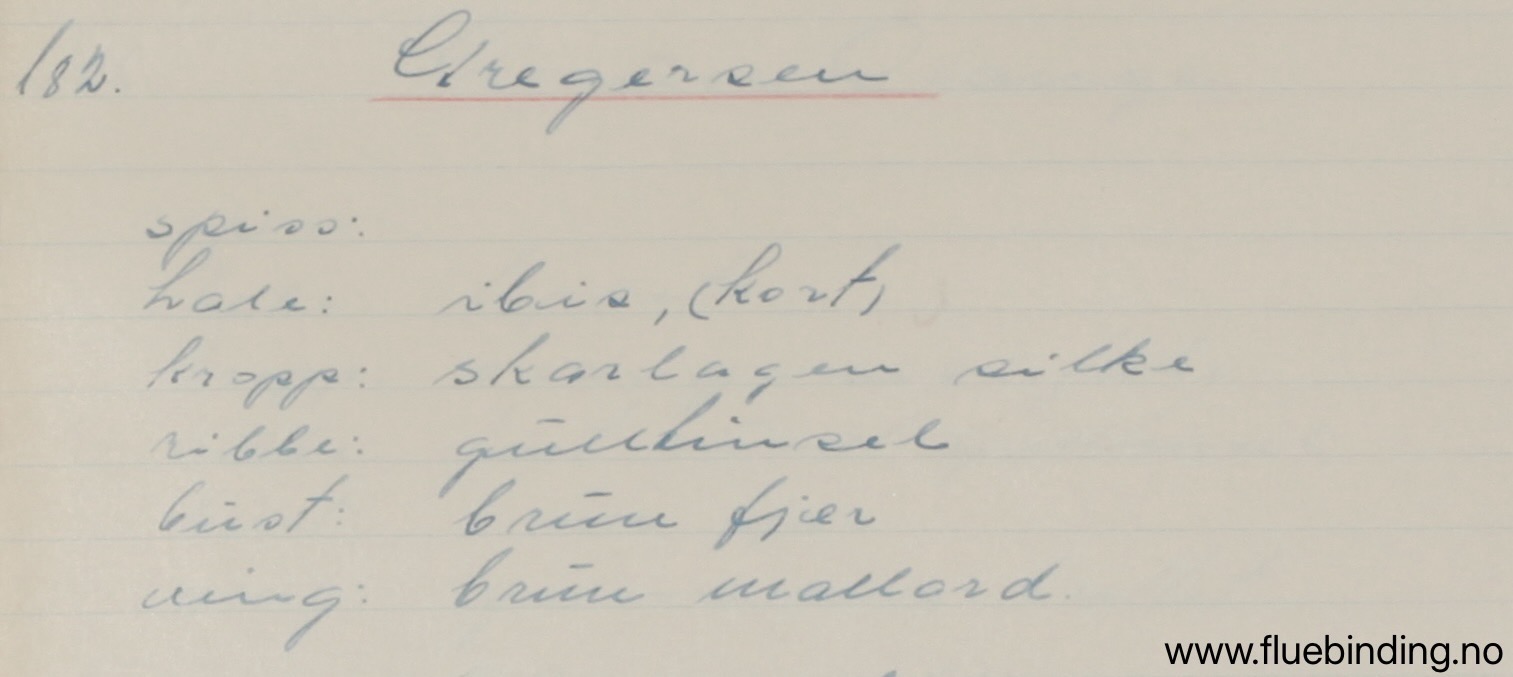 182. Gregersen
spiss:
hale: ibis, (kort)
kropp: skarlagen silke
ribbe: gulltinsel
bust: brun fjer
ving: brun mallard.
www.fluebinding.no